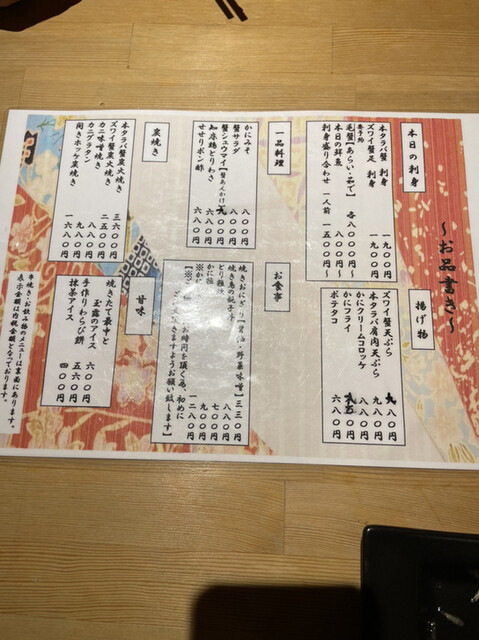 ～お品書き～
本日の刺身
本タラバ蟹 刺身 一九〇〇円
ズワイ蟹足 刺身 一九〇〇円
要予約
毛蟹【あらい・茹で】
本日の鮮魚 各八〇〇円
刺身盛り合わせ 一人前 一五〇〇円～
一品料理
かにみそ 八〇〇円
蟹サラダ 八〇〇円
蟹シュウマイ【蟹あんかけ】
知床鶏とりわさ 六八〇円
せせりポン酢 六八〇円
炭焼き
本タラバ蟹炭火焼き 三六〇〇円
ズワイ蟹炭火焼き 二五〇〇円
カニ味噌焼き 八八〇円
カニグラタン 九八〇円
開きホッケ炭焼き 一六八〇円
揚げ物
ズワイ蟹天ぷら
本タラバ肩肉天ぷら
かにクリームコロッケ 八八〇円
かにフライ
ポテタコ 六八〇円
お食事
焼きおにぎり【醤油・野菜味噌】三三〇円
焼き鳥の親子丼 八八〇円
とり雑炊 七〇〇円
かに雑 九〇〇円
※かに 一二八〇円
お時間を頂く為、初めに
ご注文頂きますようお願い致します】
甘味
焼きたて最中と
玉露のアイス 六〇〇円
手作りわらび餅 五六〇円
抹茶アイス 四〇〇円
串焼き・お飲み物のメニューは裏面にあります。
表示金額は内税金額となっております。